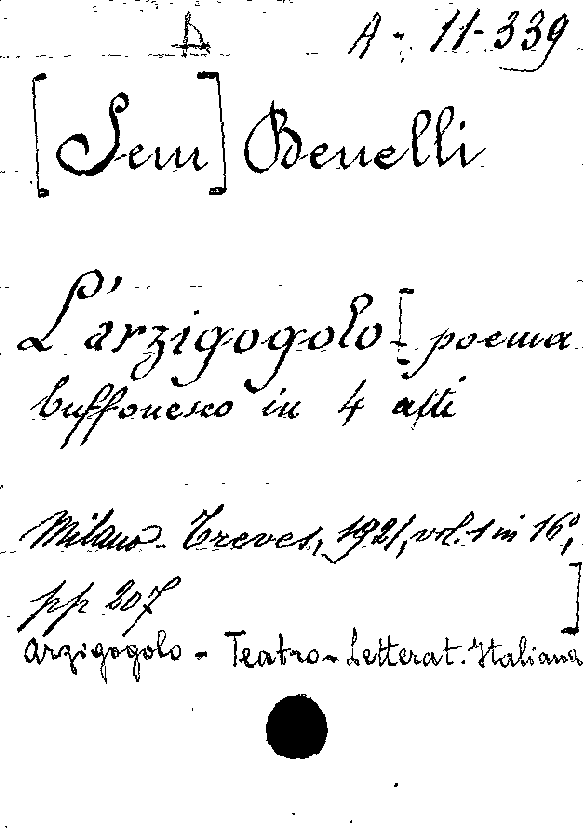 A - 11-339
[Sem] Benelli
L'arzigogolo [- poema
buffonesco in 4 atti
Milano - Treves, 1921, vol. 1 in 16°,
pp 207 ]
Arzigogolo - Teatro - Letterat. Italiana